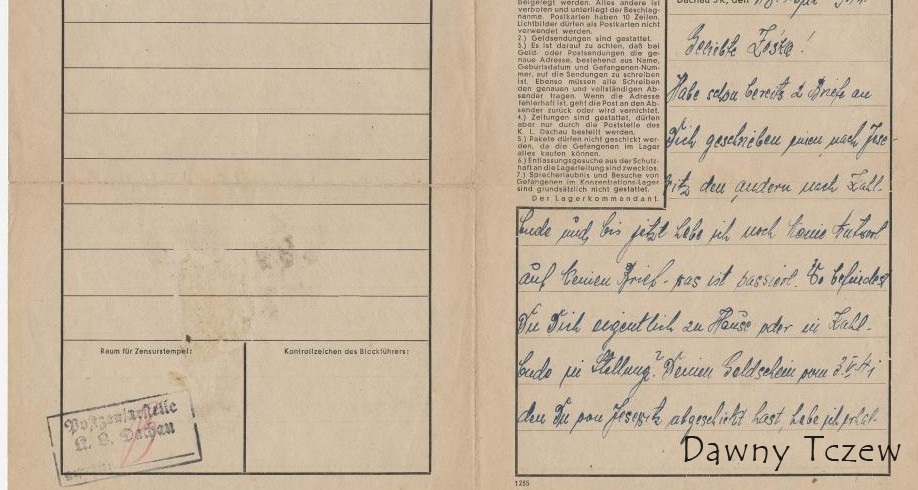 Raum für Zensurstempel:
Kontrollzeichen des Blockführers:
Postzensurstelle
K. L. Dachau
beigelegt werden. Alles andere ist
verboten und unterliegt der Beschlag-
nahme. Postkarten haben 10 Zeilen.
Lichtbilder dürfen als Postkarten nicht
verwendet werden.
2.) Geldsendungen sind gestattet.
3.) Es ist darauf zu achten, daß bei
Geld- oder Postsendungen die ge-
naue Adresse, bestehend aus Name,
Geburtsdatum und Gefangenen-Num-
mer, auf die Sendungen zu schreiben
ist. Ebenso müssen alle Schreiben
den genauen und vollständigen Ab-
sender tragen. Wenn die Adresse
fehlerhaft ist, geht die Post an den Ab-
sender zurück oder wird vernichtet.
4.) Zeitungen sind gestattet, dürfen
aber nur durch die Poststelle des
K. L. Dachau bestellt werden.
5.) Pakete dürfen nicht geschickt wer-
den, da die Gefangenen im Lager
alles kaufen können.
6.) Entlassungsgesuche aus der Schutz-
haft an die Lagerleitung sind zwecklos.
7.) Sprecherlaubnis und Besuche von
Gefangenen im Konzentrations-Lager
sind grundsätzlich nicht gestattet.
Der Lagerkommandant.
Dachau 3 K, den
Geliebte Zośka!
Habe schon bereits 2 Briefe an
Dich geschrieben einen nach Jese-
witz den andern nach Kahl-
bude und bis jetzt habe ich noch keine Antwort
auf keinen Brief - was ist passiert. Wo befindest
Du Dich eigentlich zu Hause oder in Kahl-
bude in Stellung? Deinen Geldschein vom
den Du von Jesewitz abgeschickt hast, habe ich erhal-
Dawny Tczew
1285